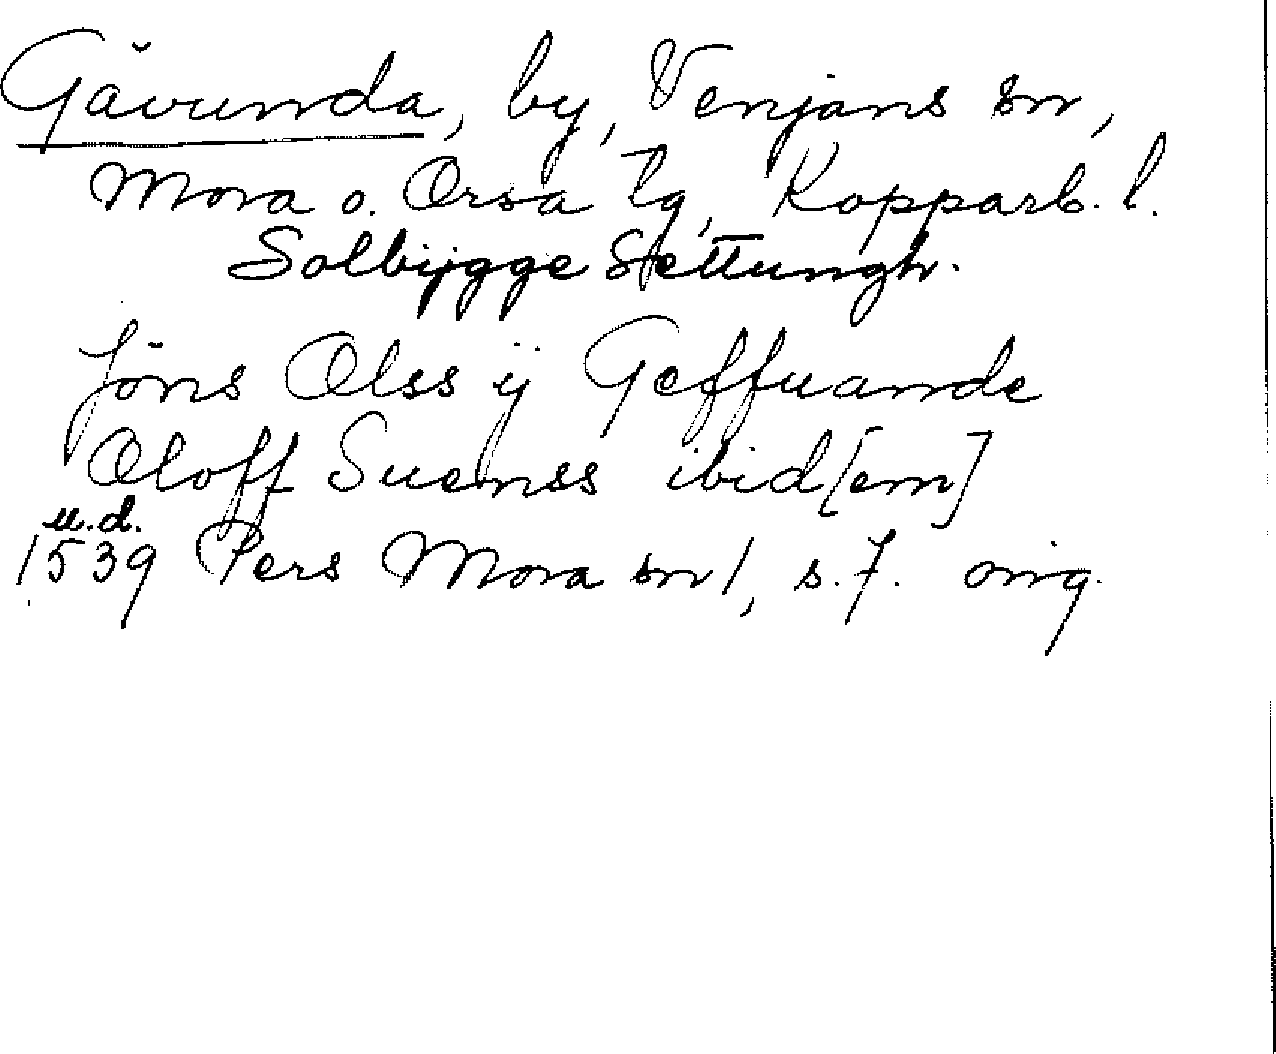 Gåvunda, by, Venjans sn,
Mora o. Orsa tg, Kopparb. l.
Solbijgge Settungh.
Jöns Olss ij Geffuande
Oloff Suenss ibid[em]
u.d.
1539 Pers Mora sn 1, s. 7. orig.